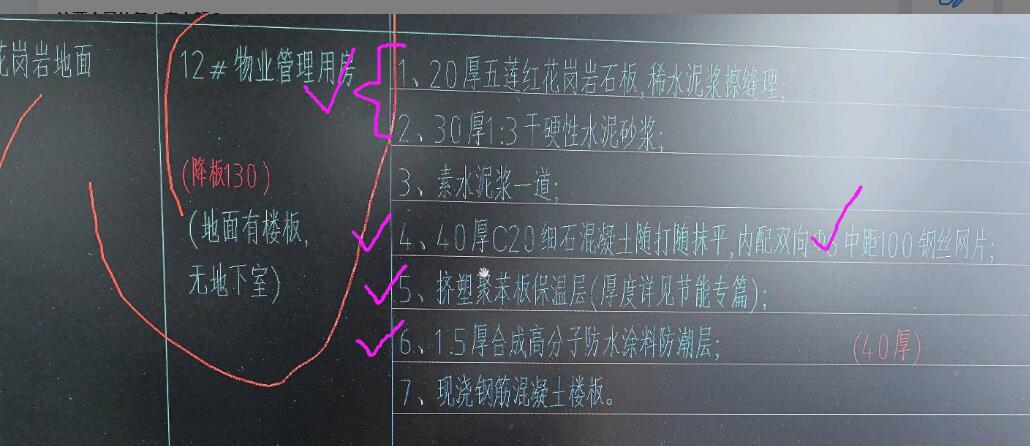 花岗岩地面
12#物业管理用房
(降板130)
(地面有楼板,
无地下室)
1、20厚五莲红花岗岩石板,稀水泥浆擦缝理;
2、30厚1:3干硬性水泥砂浆;
3、素水泥浆一道;
4、40厚C20细石混凝土随打随抹平,内配双向 中距100钢丝网片;
5、挤塑聚苯板保温层(厚度详见节能专篇);
6、1.5厚合成高分子防水涂料防潮层;
(40厚)
7、现浇钢筋混凝土楼板。